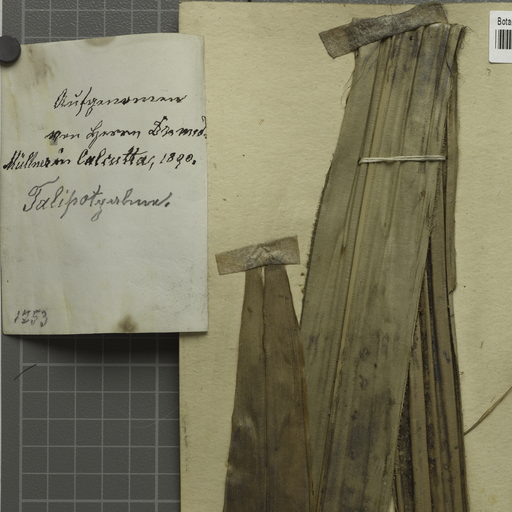 Aufgenommen
von Herrn Dr med.
Müller in Calcutta, 1890.
Talipotpalme.
1253
Bota